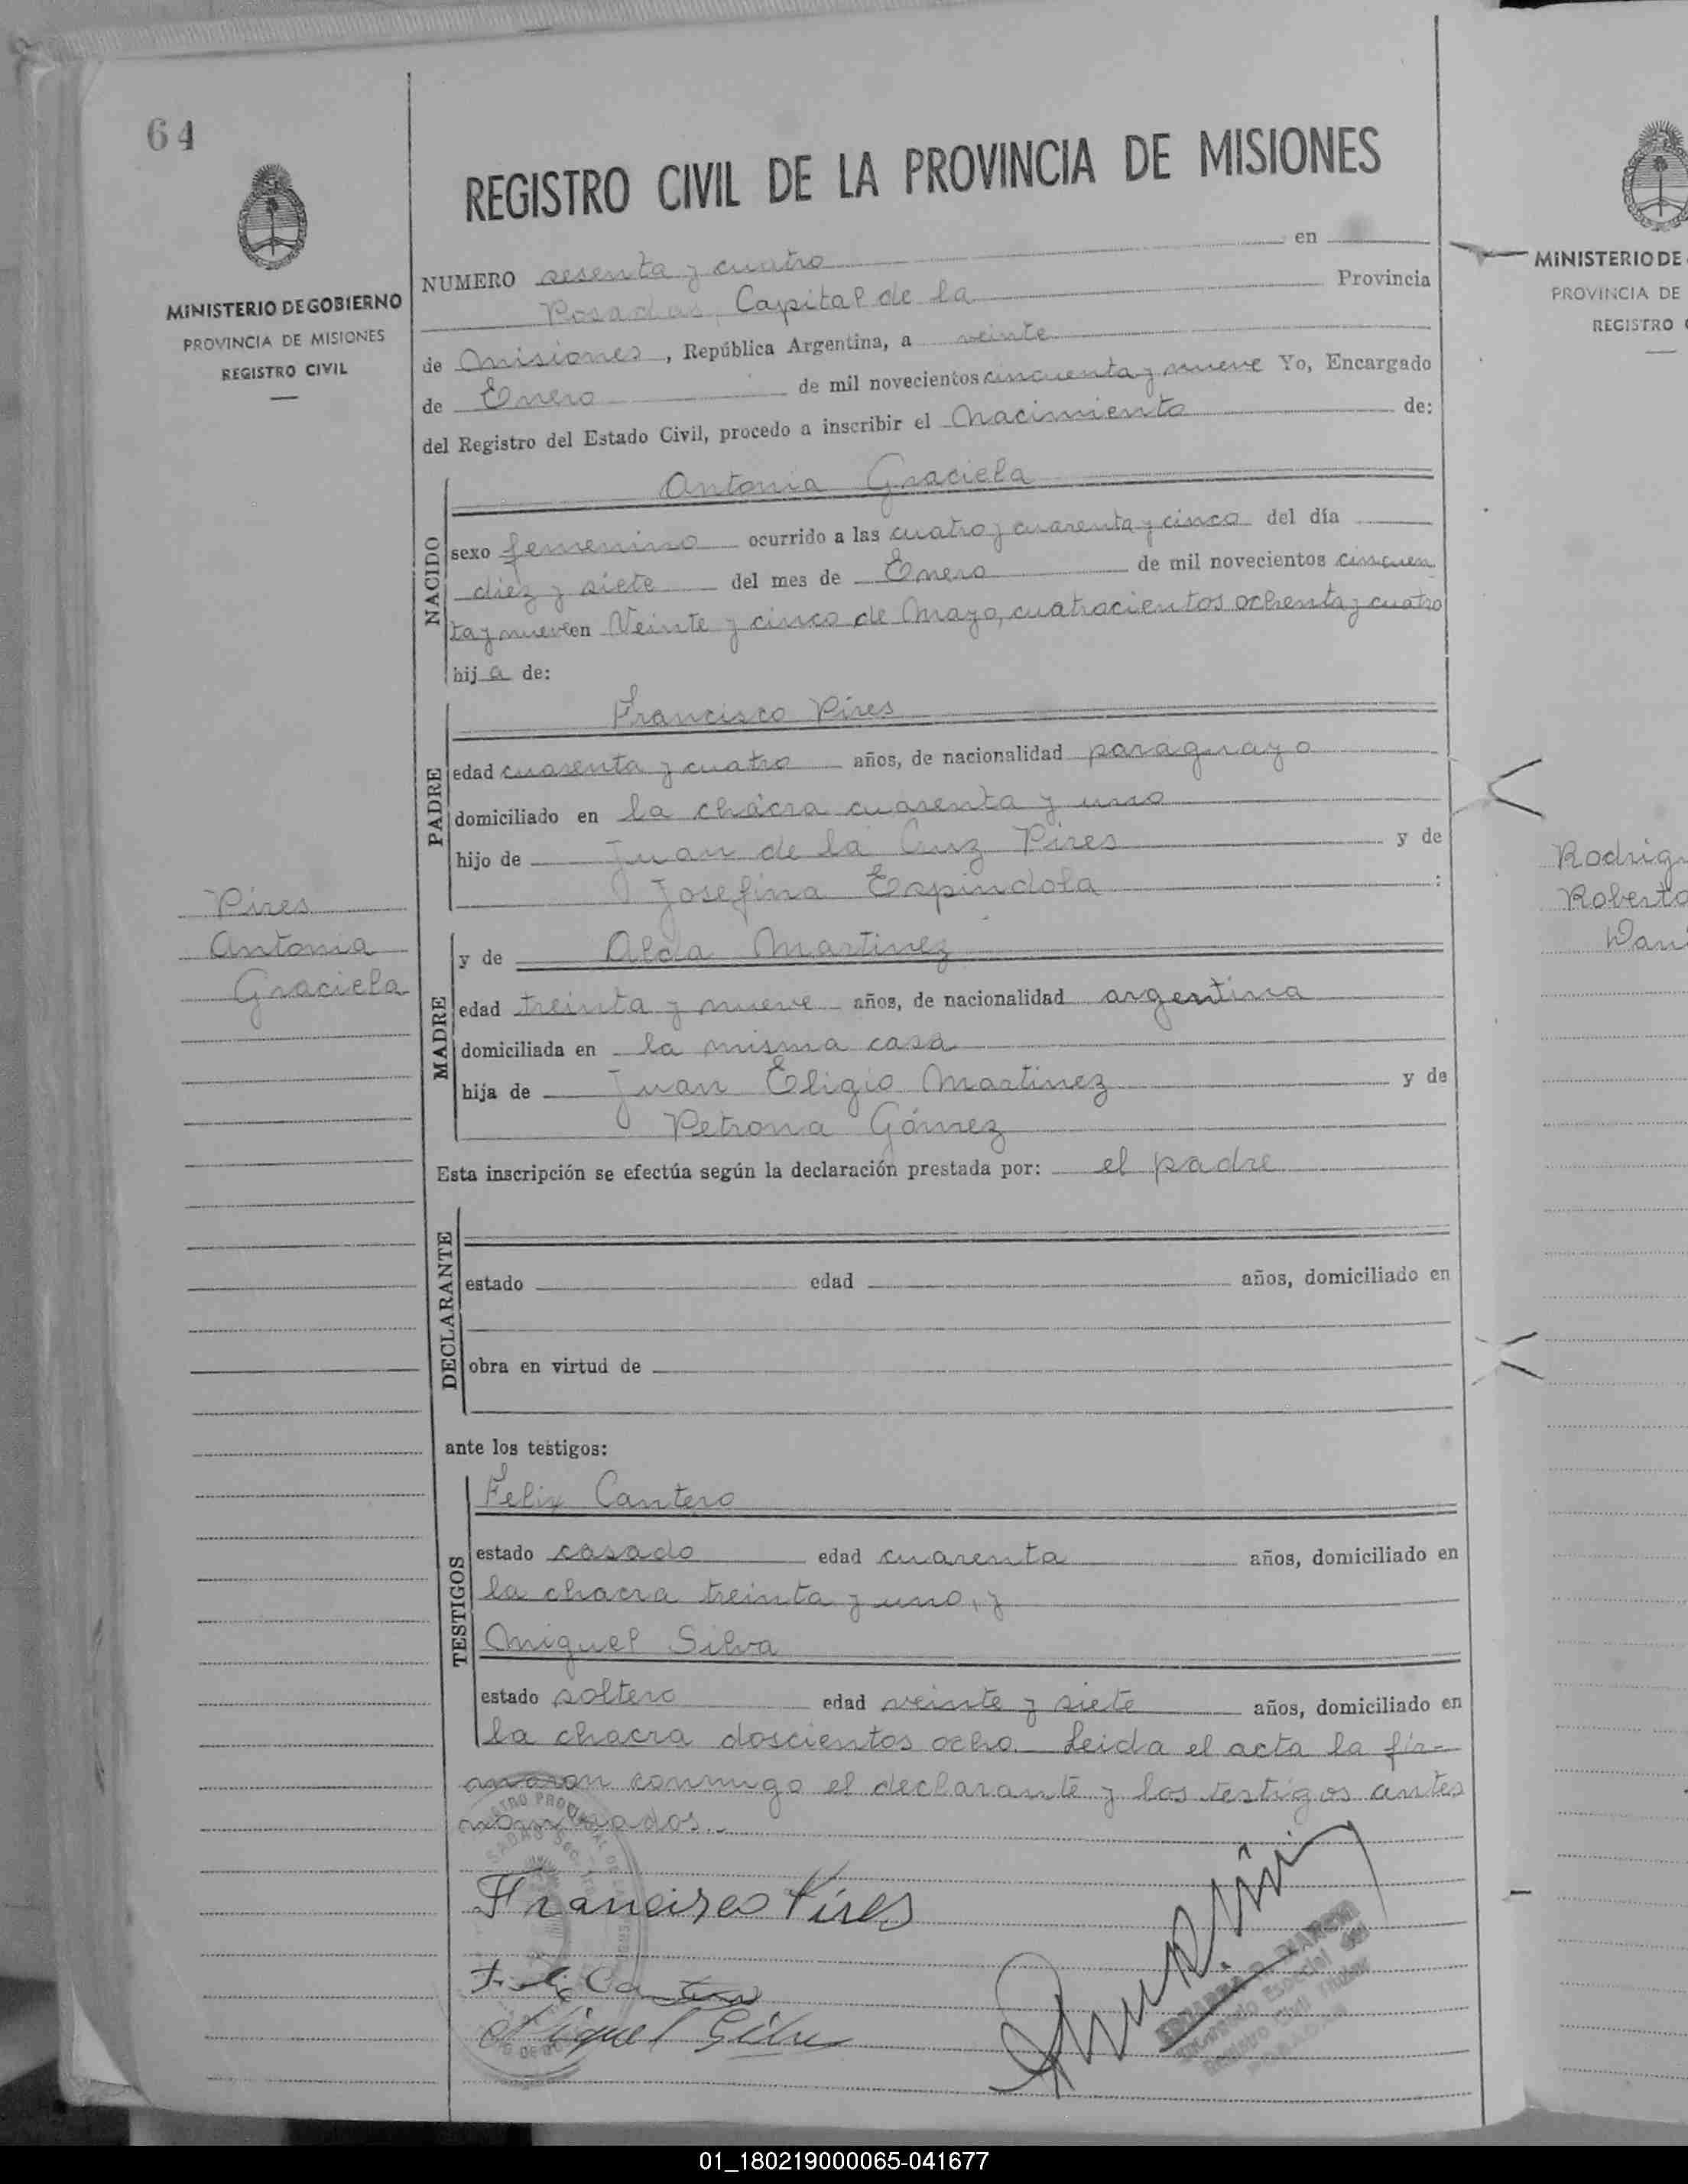 64
REGISTRO CIVIL DE LA PROVINCIA DE MISIONES
MINISTERIO DE GOBIERNO
PROVINCIA DE MISIONES
REGISTRO CIVIL
NUMERO sesenta y cuatro en
Posadas, Capital de la Provincia
de Misiones, República Argentina, a veinte
de Enero de mil novecientos cincuenta y nueve Yo, Encargado
del Registro del Estado Civil, procedo a inscribir el Nacimiento de:
NACIDO
Antonia Graciela
sexo femenino ocurrido a las cuatro y cuarenta y cinco del día
diez y siete del mes de Enero de mil novecientos cincuen
ta y nueve en Veinte y cinco de Mayo, cuatrocientos ochenta y cuatro
hij a de:
PADRE
Francisco Pires
edad cuarenta y cuatro años, de nacionalidad paraguayo
domiciliado en la chacra cuarenta y uno
hijo de Juan de la Cruz Pires y de
Josefina Espindola :
Pires
Antonia
Graciela
MADRE
y de Alda Martinez
edad treinta y nueve años, de nacionalidad argentina
domiciliada en la misma casa
hija de Juan Eligio Martinez y de
Petrona Gómez
Esta inscripción se efectúa según la declaración prestada por: el padre
DECLARANTE
estado edad años, domiciliado en
obra en virtud de
ante los testigos:
TESTIGOS
Felix Cantero
estado casado edad cuarenta años, domiciliado en
la chacra treinta y uno, y
Miguel Silva
estado soltero edad veinte y siete años, domiciliado en
la chacra doscientos ocho. Leida el acta la fir-
maron conmigo el declarante y los testigos antes
nombrados.-
Francisco Pires
Miguel Silva
MINISTERIO DE
PROVINCIA DE
REGISTRO
Rodrig
Roberto
01_180219000065-041677